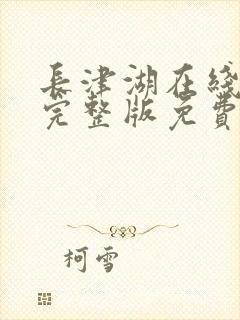 長津湖在綫
完整版免費
柯雪